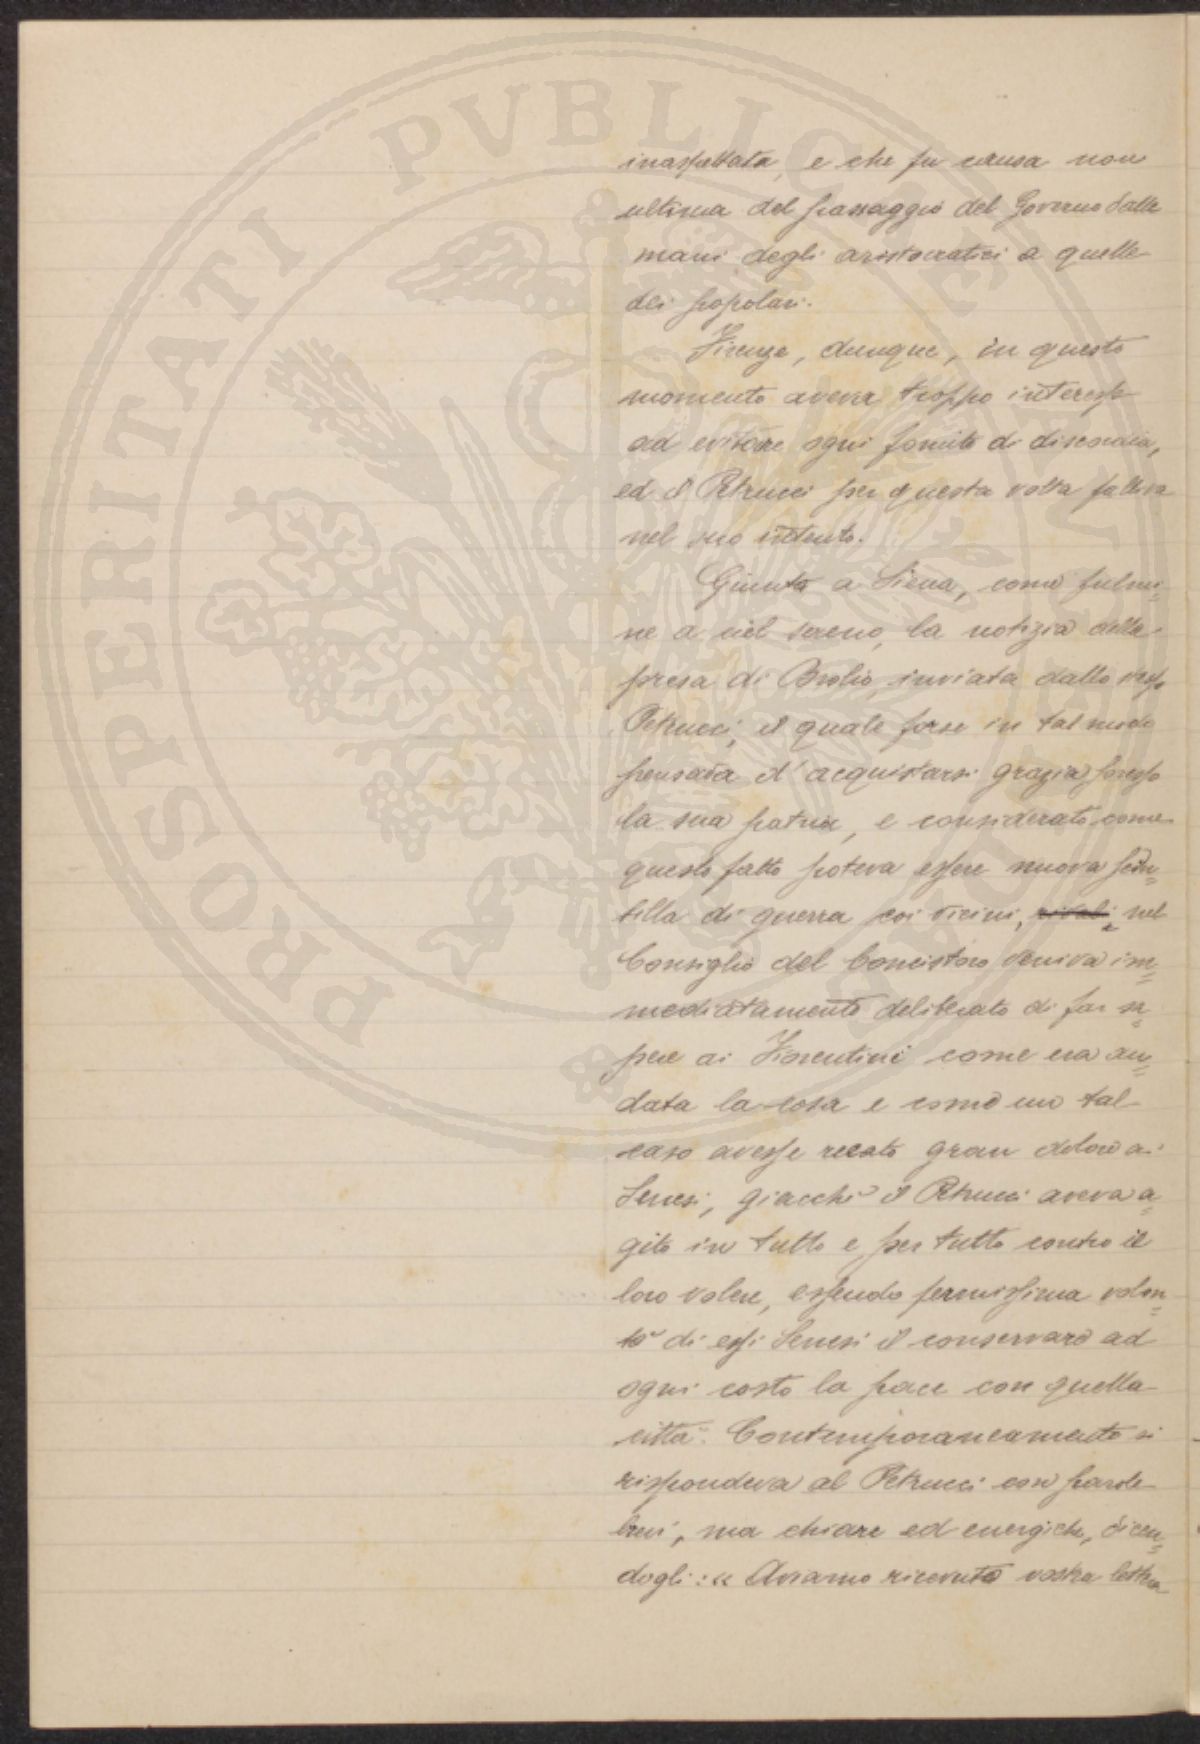 inaspettata, e che fu causa non
ultima del passaggio del Governo dalle
mani degli aristocratici a quelle
dei popolari.
Firenze, dunque, in questo
momento aveva troppo interesse
ad evitare ogni fomite di discordia,
ed il Petrucci per questa volta falliva
nel suo intento.
Giunta a Siena, come fulmi=
ne a ciel sereno, la notizia della
presa di Brolio inviata dallo stesso
Petrucci, il quale forse in tal modo
pensava d'acquistarsi grazia presso
la sua patria, e considerato come
questo fatto poteva essere nuova scin=
tilla di guerra coi vicini, rivali, nel
Consiglio del Concistoro veniva im=
mediatamente deliberato di far sa=
pere ai Fiorentini come era an=
data la cosa e come un tal
caso avesse recato gran dolore ai
Senesi, giacchè il Petrucci aveva a=
gito in tutto e per tutto contro il
loro volere, essendo fermissima volon=
tà di essi Senesi il conservare ad
ogni costo la pace con quella
città. Contemporaneamente si
rispondeva al Petrucci con parole
brevi, ma chiare ed energiche, dicen=
dogli: « Aviamo ricevuto vostra lettera
PROSPERITATI PVBLICAE